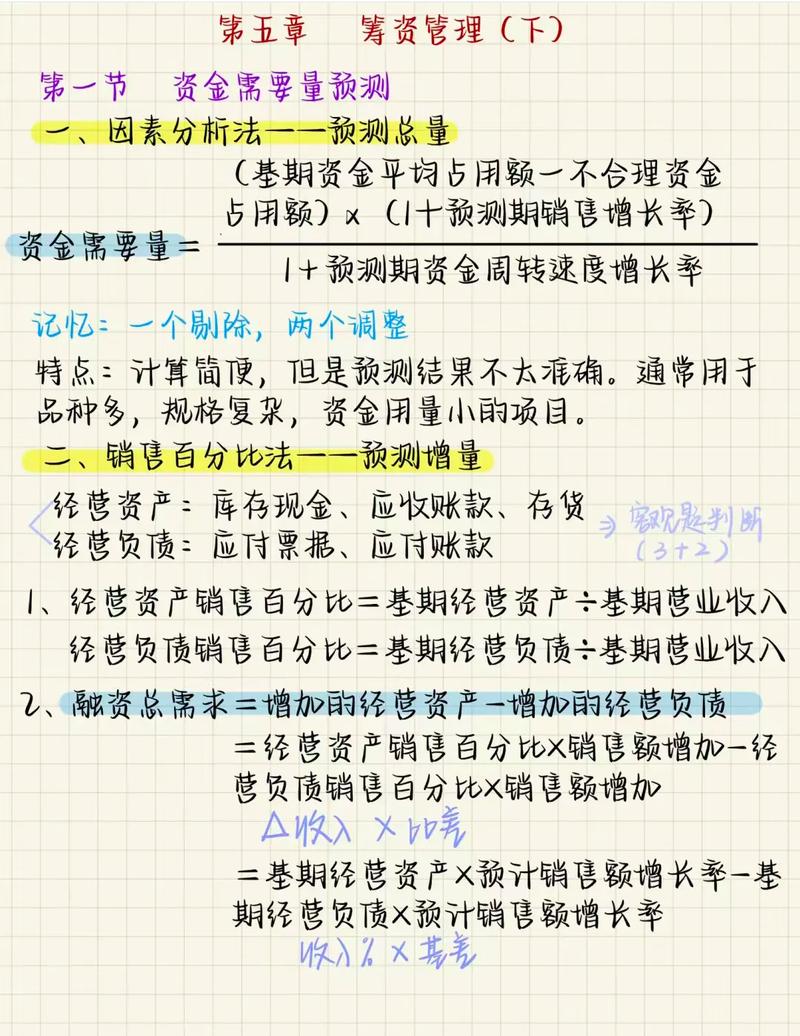 第五章 筹资管理(下)
第一节 资金需要量预测
一、因素分析法——预测总量
(基期资金平均占用额一不合理资金
占用额)x(1+预测期销售增长率)
资金需要量=
1+预测期资金周转速度增长率
记忆:一个剔除,两个调整
特点:计算简便,但是预测结果不太准确。通常用于
品种多,规格复杂,资金用量小的项目。
二、销售百分比法——预测增量
经营资产:库存现金、应收账款、存货
经营负债:应付票据、应付账款
⇒客观题判断
(3+2)
1、经营资产销售百分比=基期经营资产÷基期营业收入
经营负债销售百分比=基期经营负债÷基期营业收入
2、融资总需求=增加的经营资产一增加的经营负债
=经营资产销售百分比X销售额增加一经
营负债销售百分比X销售额增加
△收入 X 比差
=基期经营资产X预计销售额增长率一基
期经营负债X预计销售额增长率
收入% X 基差